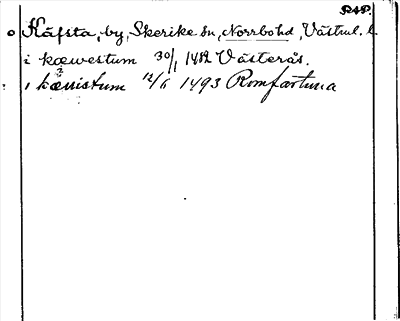 RAP.
Käfsta, by, Skerike sn, Norrbohd, Västml. l.
i kœwestum 30/1 1412 Västerås.
i kœuistum 12/6 1493 Romfartuna